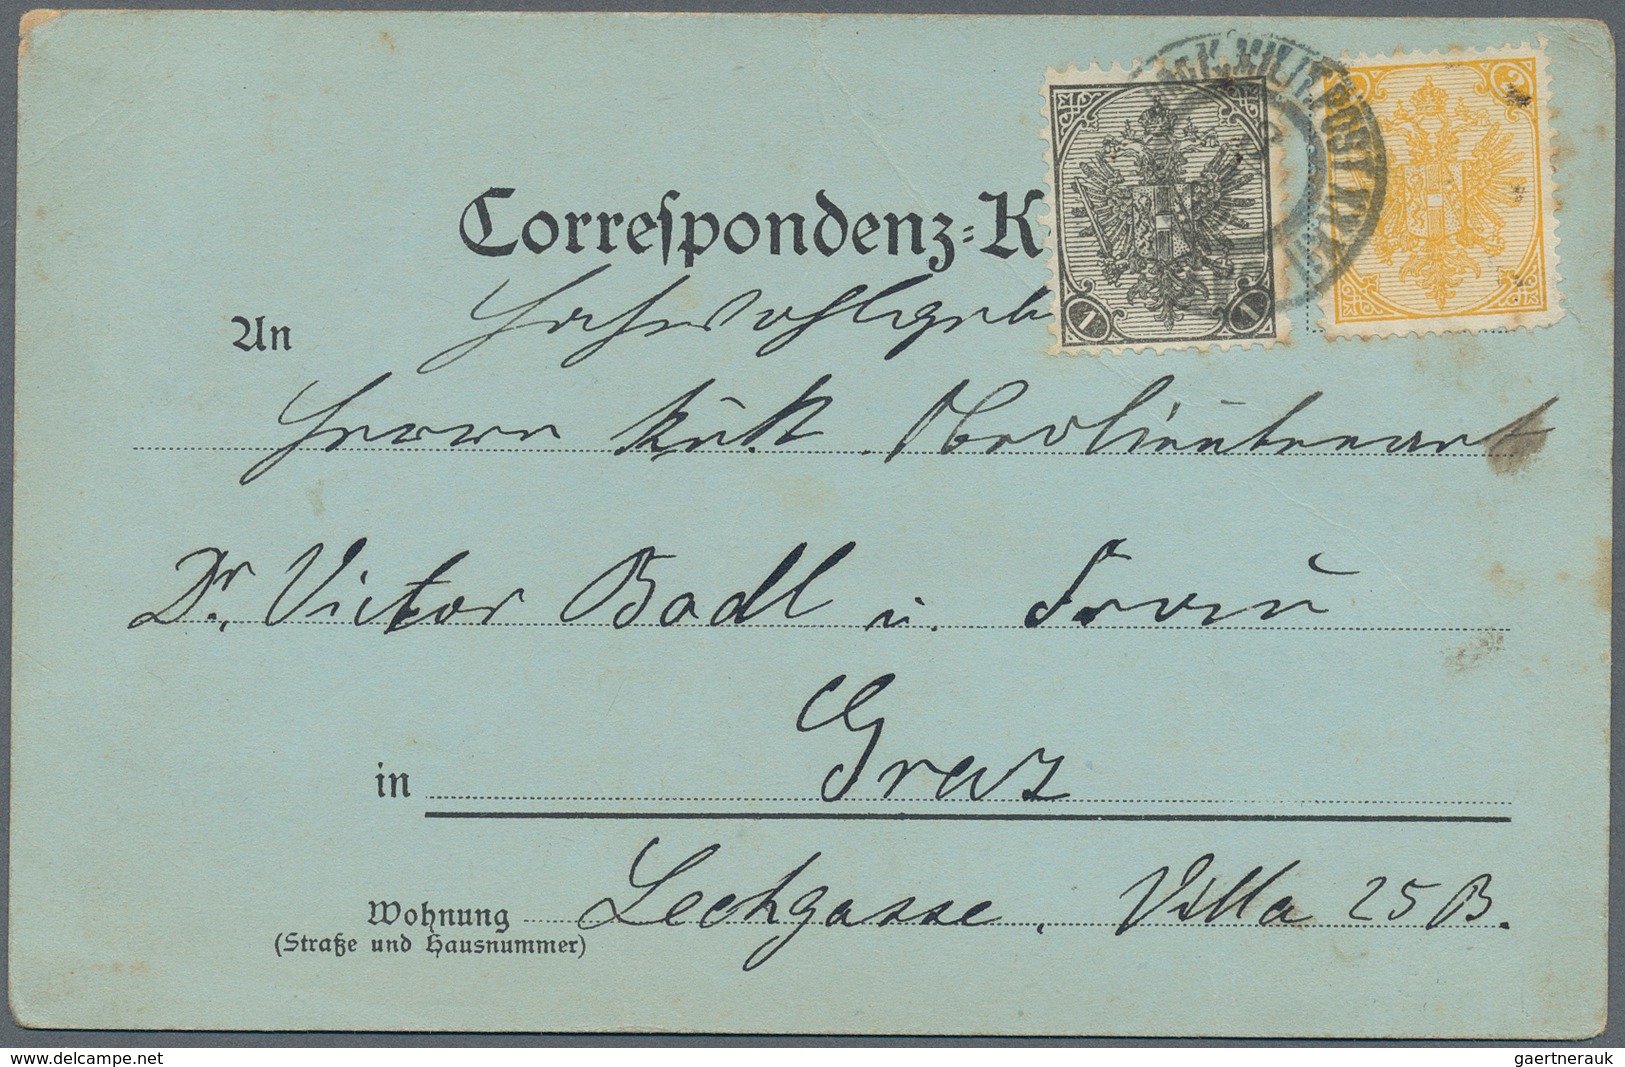 K.u.K. MILIT. POST
Correspondenz-K
1 1
An Hochwohlgeb
Herrn k.u.k. Oberlieutenant
Dr. Victor Badl u. Frau
in Graz
Wohnung Lechgasse, Villa 25 B.
(Straße und Hausnummer)
www.delcampe.net
gaertnerauk